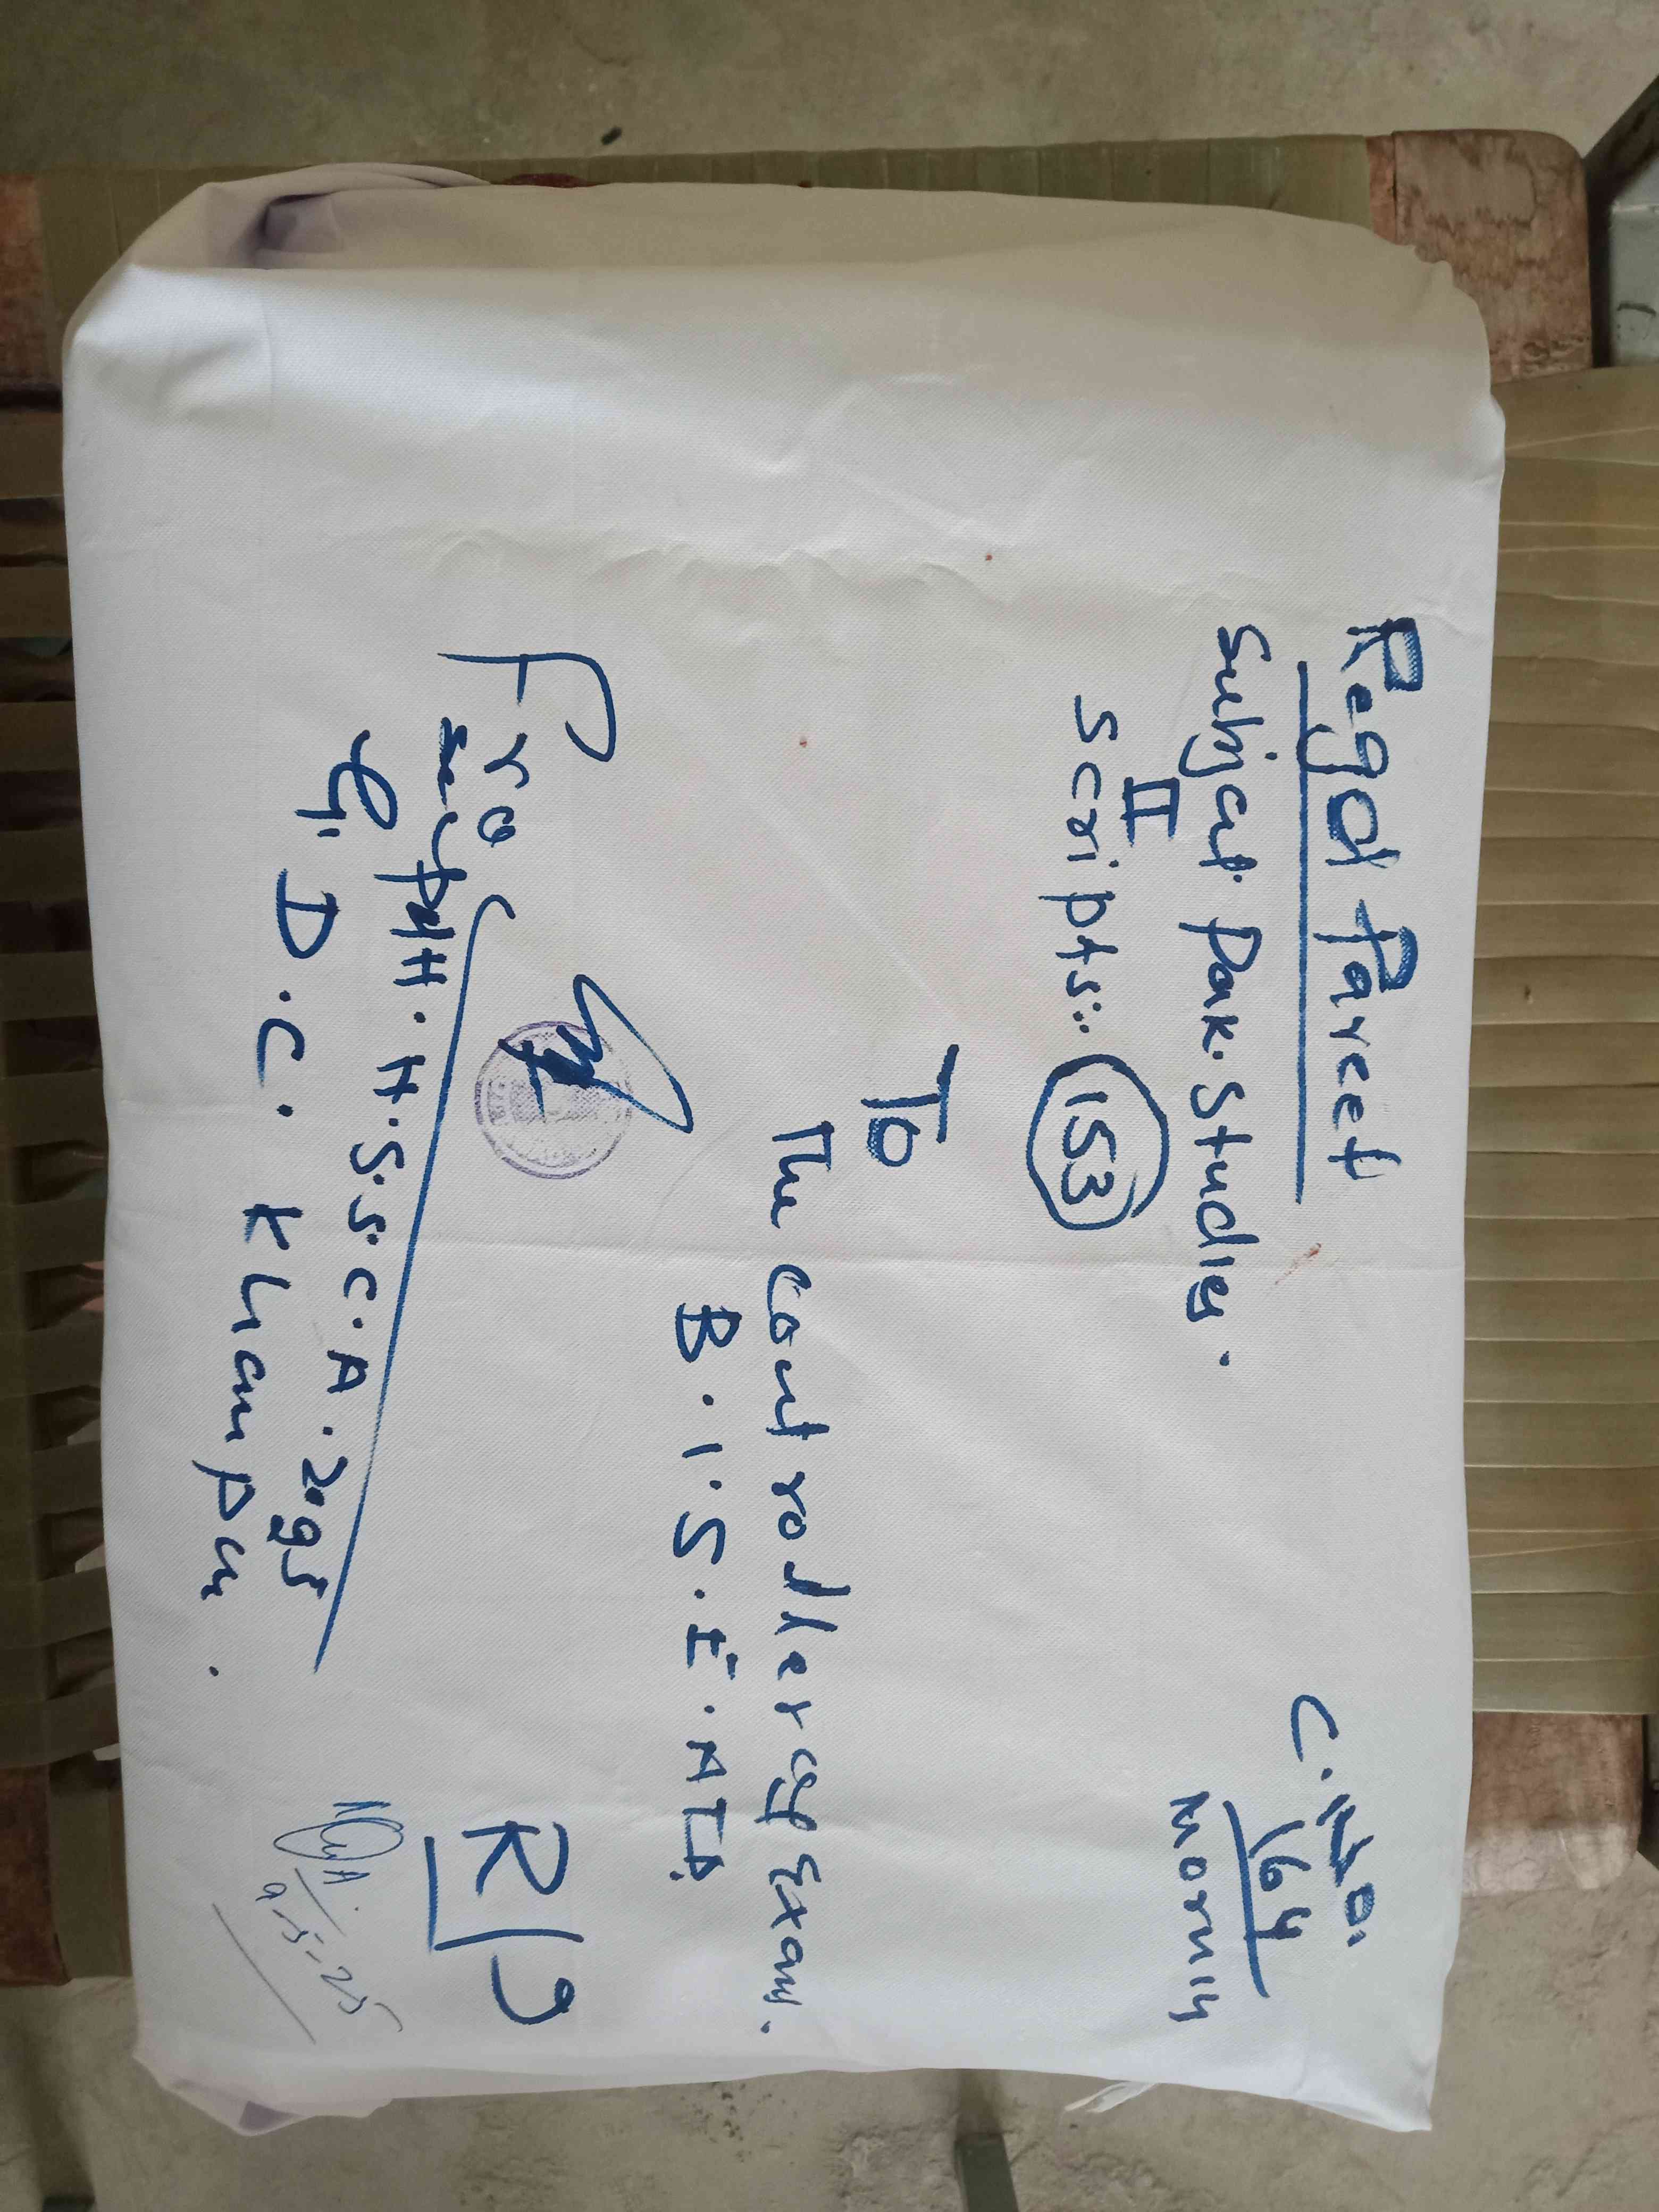 Regd Parcel
C. No.
164
Morning
Subject Pak. Studies.
II
Scripts: 153
To
The Controller of Exam.
B.I.S.E. ATD
From
H.S.S.C. A. 2025
G.D.C. Khanpur.
R/P
9-5-25